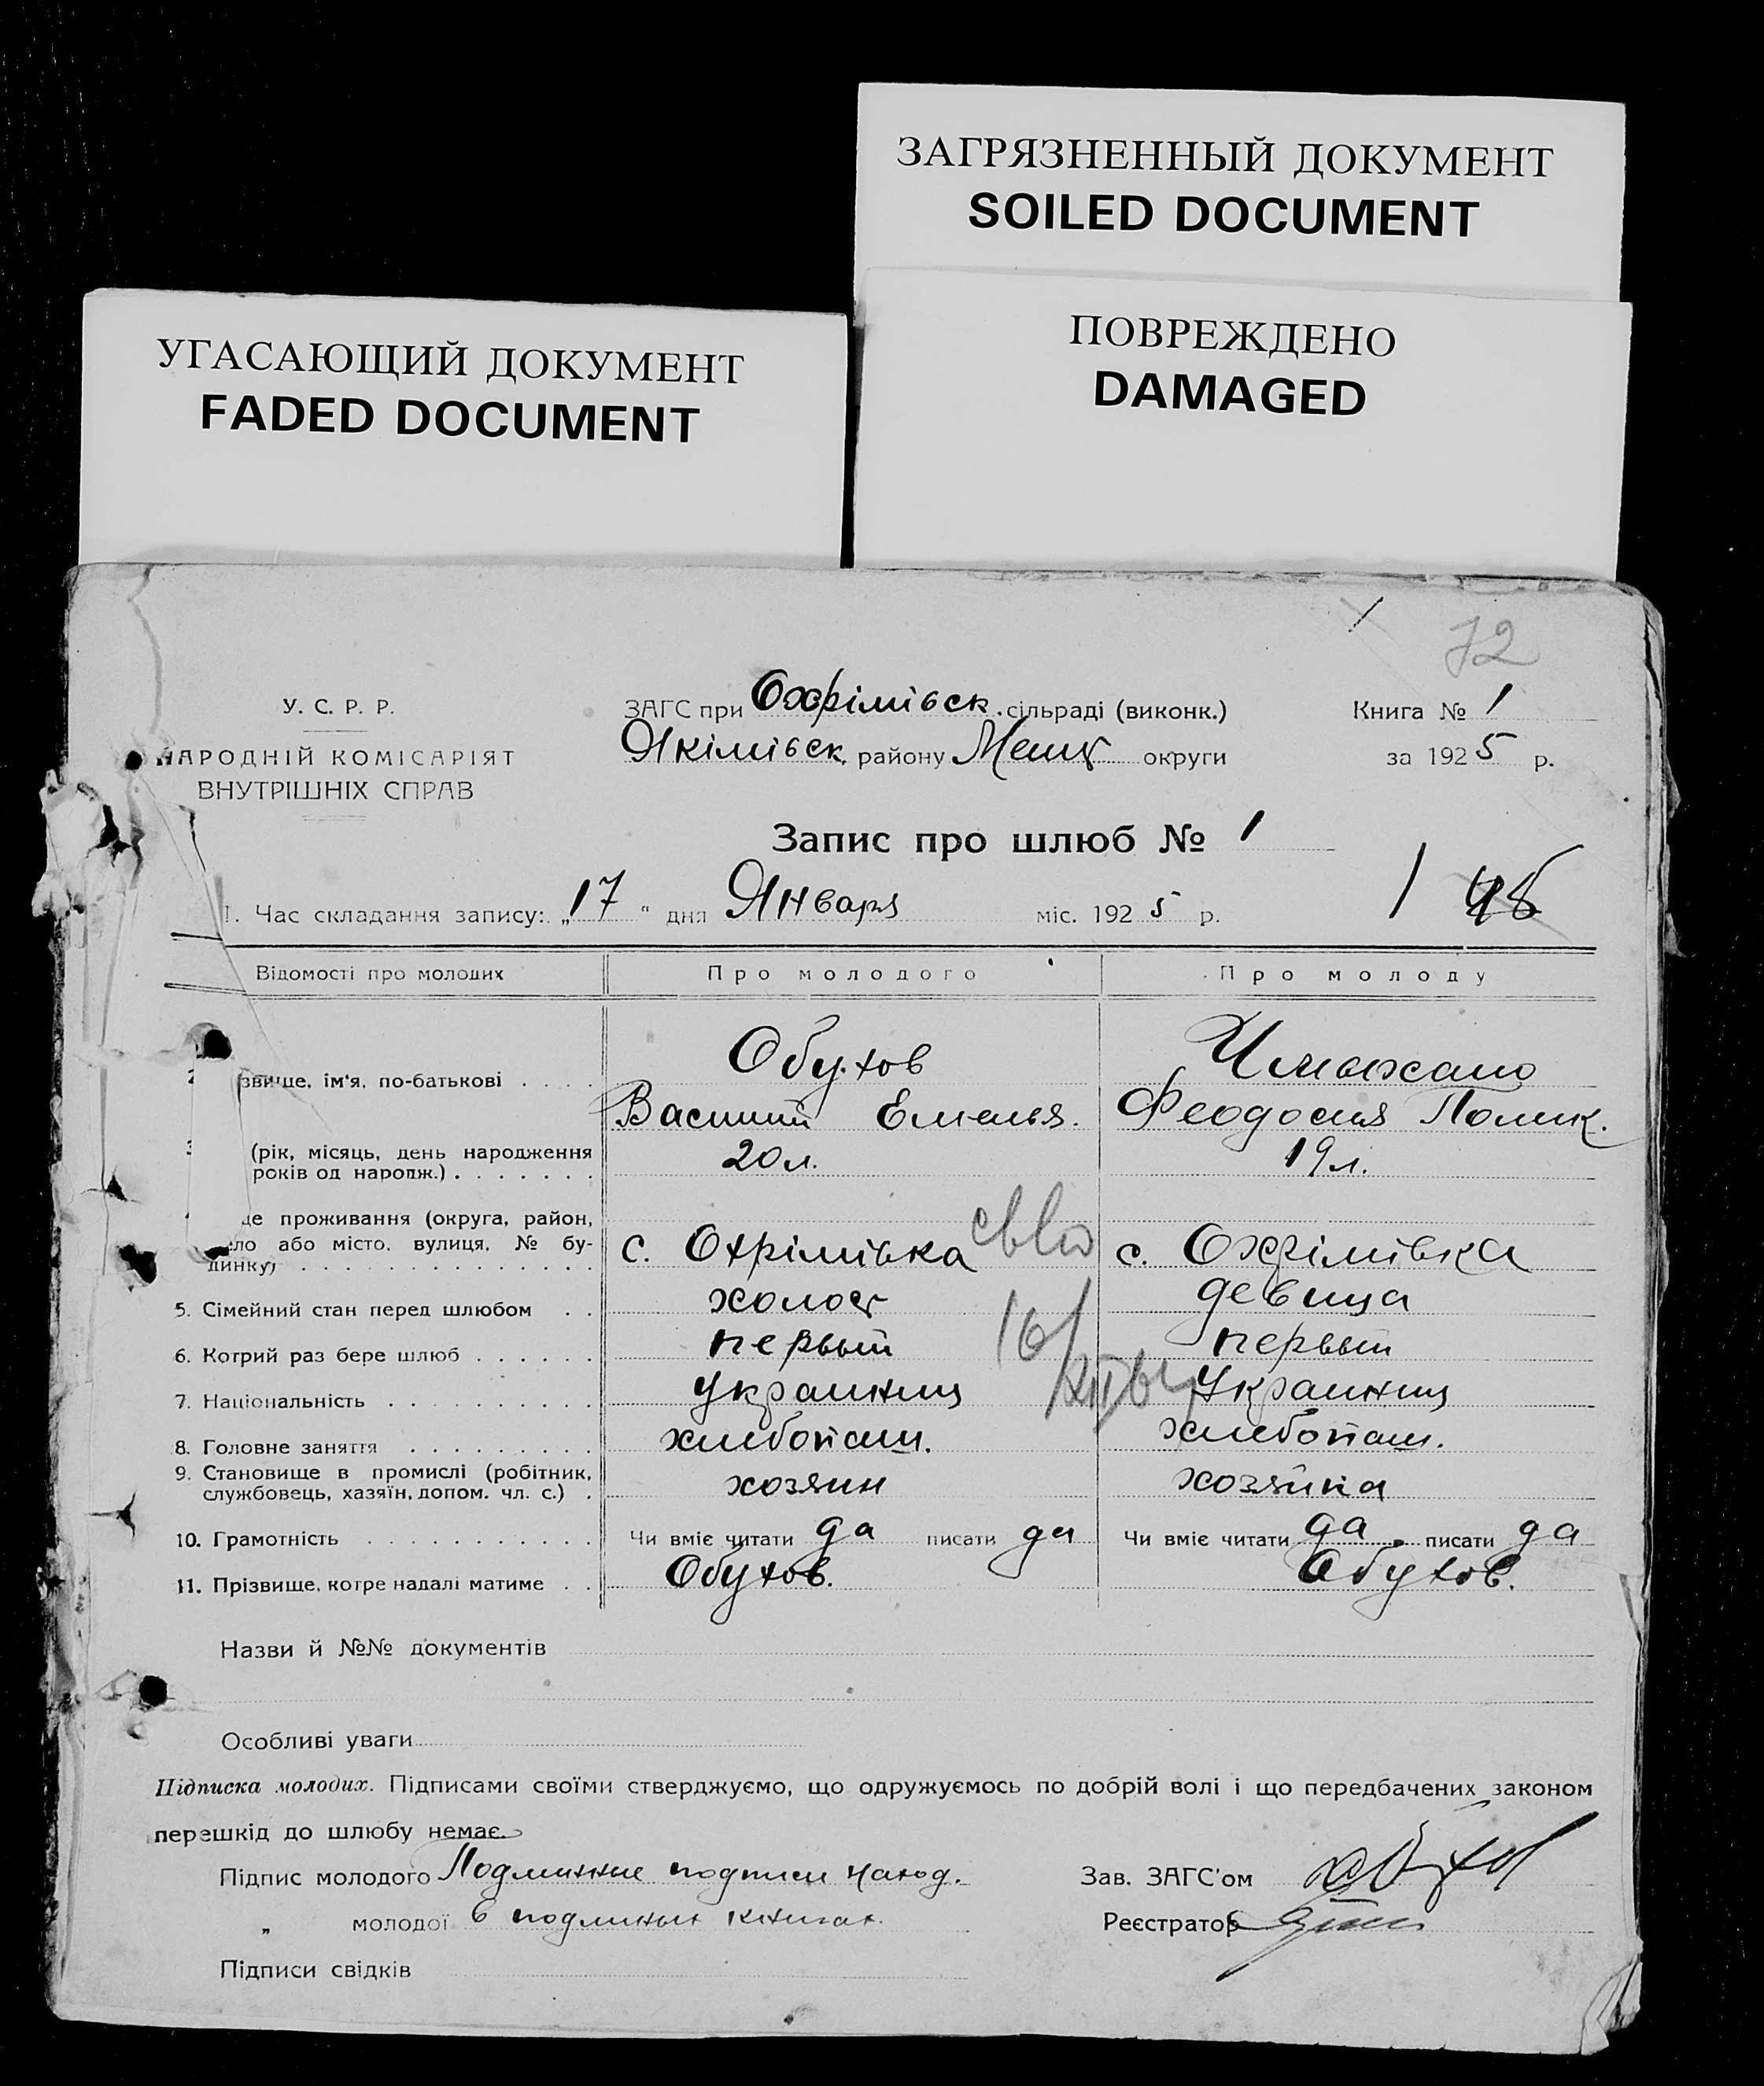 ЗАГРЯЗНЕННЫЙ ДОКУМЕНТ
SOILED DOCUMENT
ПОВРЕЖДЕНО
DAMAGED
УГАСАЮЩИЙ ДОКУМЕНТ
FADED DOCUMENT
72
У. С. Р. Р.
НАРОДНІЙ КОМІСАРІЯТ
ВНУТРІШНІХ СПРАВ
ЗАГС при Охрімівск. сільраді (виконк.)
Якімівск. району Меліт округи
Книга № 1
за 1925 р.
Запис про шлюб № 1
1. Час складання запису: „17“ дня Января міс. 1925 р.
1 48
Відомості про молодих Про молодого Про молоду
звище, ім'я, по-батькові . . . . Обухов
Василий Емелья. Феодосия Полик.
(рік, місяць, день народження
років од народж.) . . . . . . . 20 л. 19 л.
це проживання (округа, район,
ло або місто, вулиця, № бу-
динку) . . . . . . . . . . . . . . с. Охрімівка с. Охрімівка
5. Сімейний стан перед шлюбом . . холост девица
6. Котрий раз бере шлюб . . . . . . первый первый
7. Національність . . . . . . . . . . украинец украинец
8. Головне заняття . . . . . . . . . хлебопаш. хлебопаш.
9. Становище в промислі (робітник,
службовець, хазяїн, допом. чл. с.) . хозяин хозяйка
10. Грамотність . . . . . . . . . . . Чи вміє читати да писати да Чи вміє читати да писати да
11. Прізвище, котре надалі матиме . . Обухов. Обухов.
Назви й №№ документів
Особливі уваги
Підписка молодих. Підписами своїми стверджуємо, що одружуємось по добрій волі і що передбачених законом
перешкід до шлюбу немає.
Підпис молодого Подлинние подписи наход.
„ молодої в подлиных книгах.
Зав. ЗАГС'ом
Реєстратор
Підписи свідків